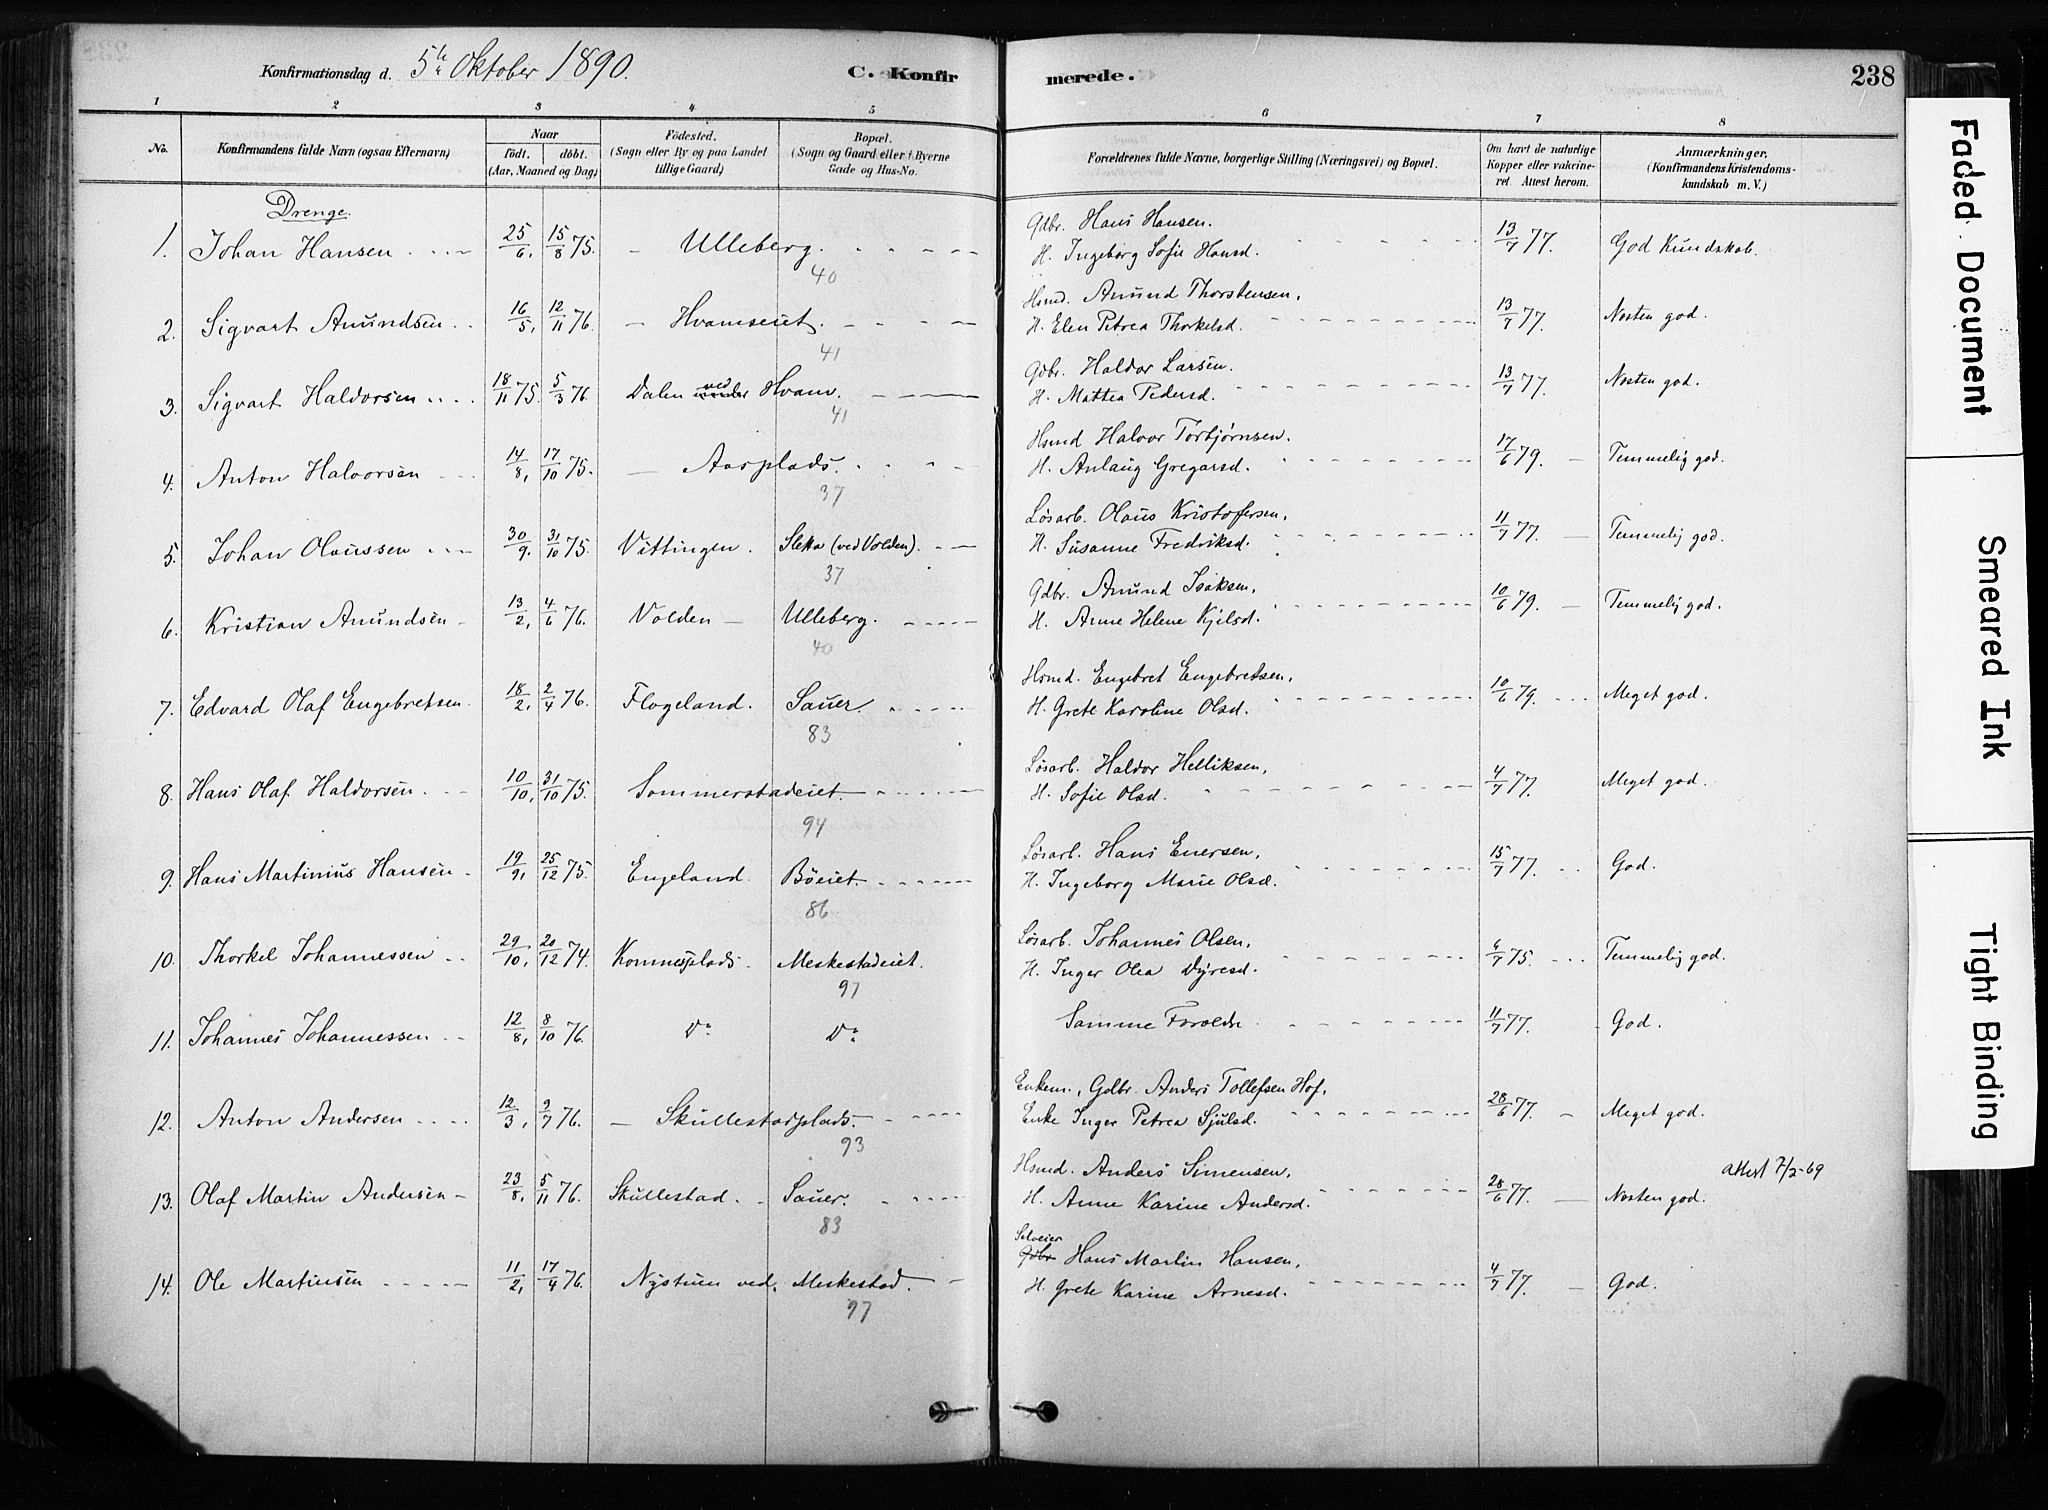 Konfirmationsdag d. 5te Oktober 1890. C. Konfirmerede. 238
1 2 3 4 5 6 7 8
No. Konfirmandens fulde Navn (ogsaa Efternavn) Naar födt. döbt. (Aar, Maaned og Dag) Födested. (Sogn eller By og paa Landet tillige Gaard) Bopæl. (Sogn og Gaard eller i Byerne Gade og Hus-No. Forældrenes fulde Navne, borgerlige Stilling (Næringsvei) og Bopæl. Om havt de naturlige Kopper eller vakcineret. Attest herom. Anmærkninger. (Konfirmandens Kristendomskundskab m. V.)
Drenge.
Gdbr. Hans Hansen.
1. Johan Hansen 25/6, 15/8 75. Ulleberg. H. Ingeborg Sofie Hansd. 13/7 77. God Kundskab.
40
Hsmd. Amund Thorstensen,
2. Sigvart Amundsen 16/5, 12/11 76. Hvamseiet. H. Elen Petrea Thorkelsd. 13/7 77. Nesten god.
41
Gdbr. Haldor Larsen.
3. Sigvart Haldorsen 18/11 75. 5/3 76. Dalen ved Hvam. H. Mattea Pedersd. 13/7 77. Nesten god.
41
Hsmd Halvor Torbjørnsen.
4. Anton Halvorsen 14/8, 17/10 75. Aasplads. H. Anlaug Gregarsd. 17/6 79. Temmelig god.
37
Løsarb. Olaus Kristofersen,
5. Johan Olaussen 30/9, 31/10 75. Vittingen. Sletta (ved Volden). H. Susanne Fredriksd. 11/7 77. Temmelig god.
37
Gdbr. Amund Isaksen,
6. Kristian Amundsen 13/2, 4/6 76. Volden Ulleberg. H. Anne Helene Kjelsd. 10/6 79. Temmelig god.
40
Hsmd. Engebret Engebretsen,
7. Edvard Olaf Engebretsen 18/2, 2/4 76. Flogeland. Sauer. H. Grete Karoline Olsd. 10/6 79. Meget god.
83
Løsarb. Haldor Helliksen,
8. Hans Olaf Haldorsen 10/10, 31/10 75. Sommerstadeiet. H. Sofie Olsd. 4/7 77. Meget god.
94
Løsarb. Hans Enersen,
9. Hans Martinius Hansen 19/9, 25/12 75. Engeland. Böeiet. H. Ingeborg Marie Olsd. 15/7 77. God.
86
Løsarb. Johannes Olsen,
10. Thorkel Johannessen 29/10, 20/12 74. Komnesplads. Meskestadeiet. H. Inger Olea Dyresd. 6/7 75. Temmelig god.
97
11. Johannes Johannessen 12/8, 8/10 76. Do Do Samme Foreldre 11/7 77. God.
Enkem., Gdbr. Anders Tollefsen Hof,
12. Anton Andersen 12/3, 9/7 76. Skullestadplads. Enke Inger Petrea Sjulsd. 28/6 77. Meget god.
93
Hsmd. Anders Simensen, attest 7/2-69
13. Olaf Martin Andersen 23/8, 5/11 76. Skullestad. Sauer. H. Anne Karine Andersd. 28/6 77. Nesten god.
83
Selveier
Gdbr Hans Martin Hansen,
14. Ole Martinsen 11/2, 17/4 76. Nystuen ved Meskestad. H. Grete Karine Arnesd. 4/7 77. God.
97
Faded Document
Smeared Ink
Tight Binding